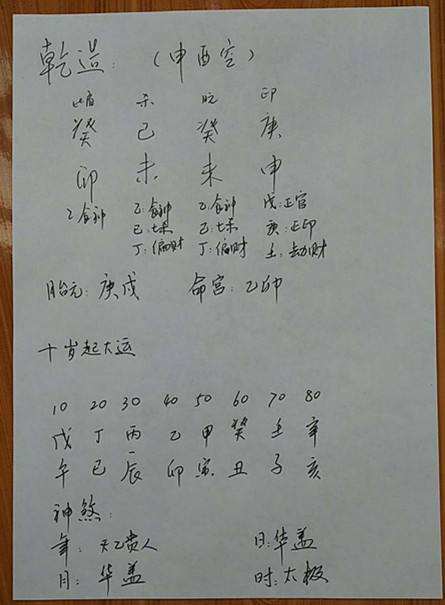 乾造：（申酉空）
比肩 杀 印
癸 己 癸 庚
卯 未 未 申
乙食神 乙：食神 乙：食神 戊：正官
己：七杀 己：七杀 庚：正印
丁：偏财 丁：偏财 壬：劫财
胎元：庚戌 命宫：乙卯
十岁起大运
10 20 30 40 50 60 70 80
戊 丁 丙 乙 甲 癸 壬 辛
午 巳 辰 卯 寅 丑 子 亥
神煞：
年：天乙贵人 日：华盖
月：华盖 时：太极